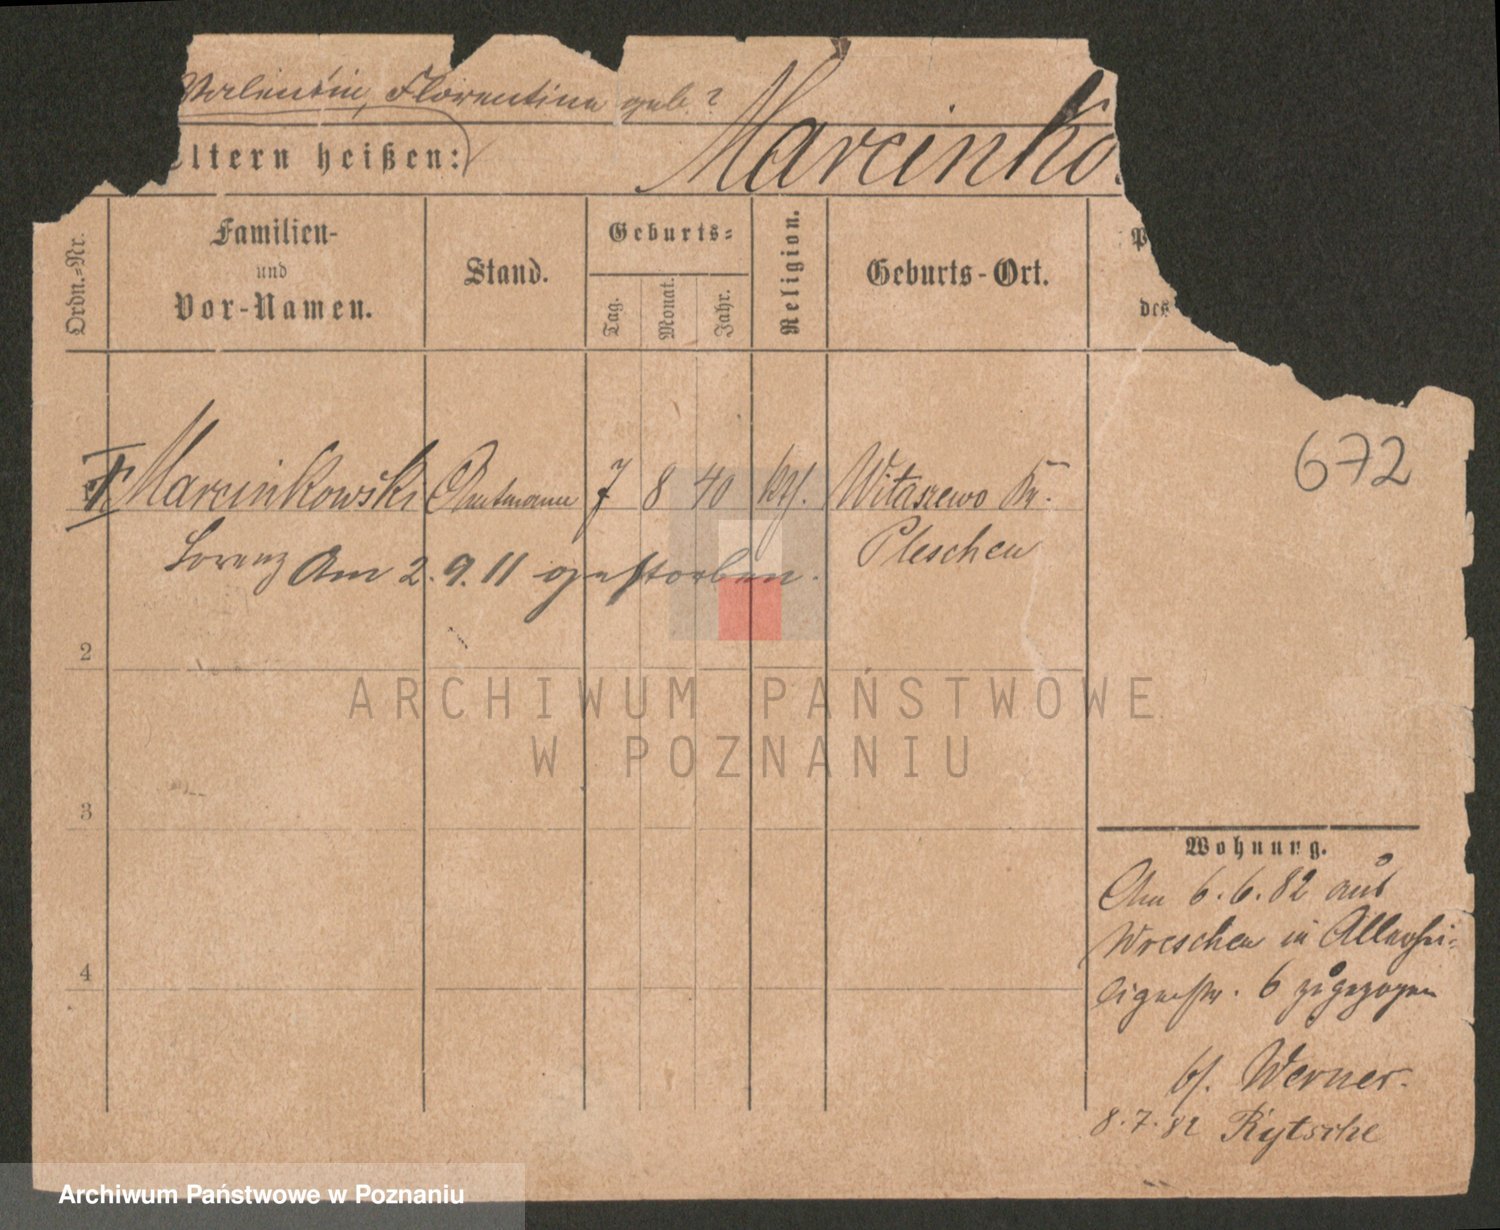 Valentin, Florentina geb ?
Eltern heißen:
Marcinko
Ordn.-Nr.
Familien-
und
Vor-Namen.
Stand.
Geburts-
Tag.
Monat.
Jahr.
Religion.
Geburts-Ort.
des
672
Marcinkowski Amtmann 7 8 40 kth. Witaszewo Kr.
Lorenz Am 2.9.11 gestorben. Pleschen
2
3
4
ARCHIWUM PAŃSTWOWE
W POZNANIU
Wohnung.
Am 6.6.82 aus
Wreschen in Allerhei-
ligenstr. 6 zugezogen
Werner.
8.7.82 Rytsche
Archiwum Państwowe w Poznaniu